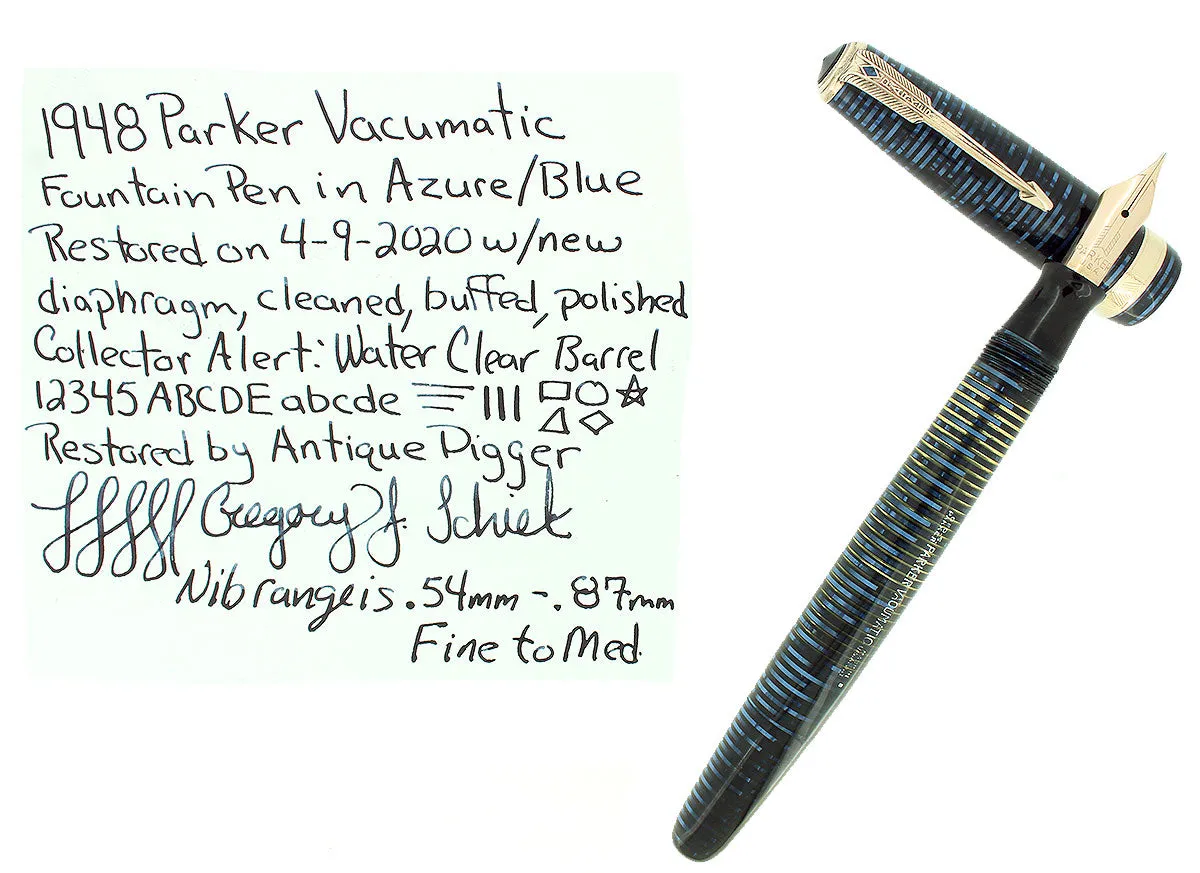 1948 Parker Vacumatic
Fountain Pen in Azure/Blue
Restored on 4-9-2020 w/new
diaphragm, cleaned, buffed, polished
Collector Alert: Water Clear Barrel
12345 ABCDE abcde
Restored by Antique Digger
Gregory J. Schiek
Nib range is .54mm - .87mm
Fine to Med.
PARKER
PARKER VACUMATIC